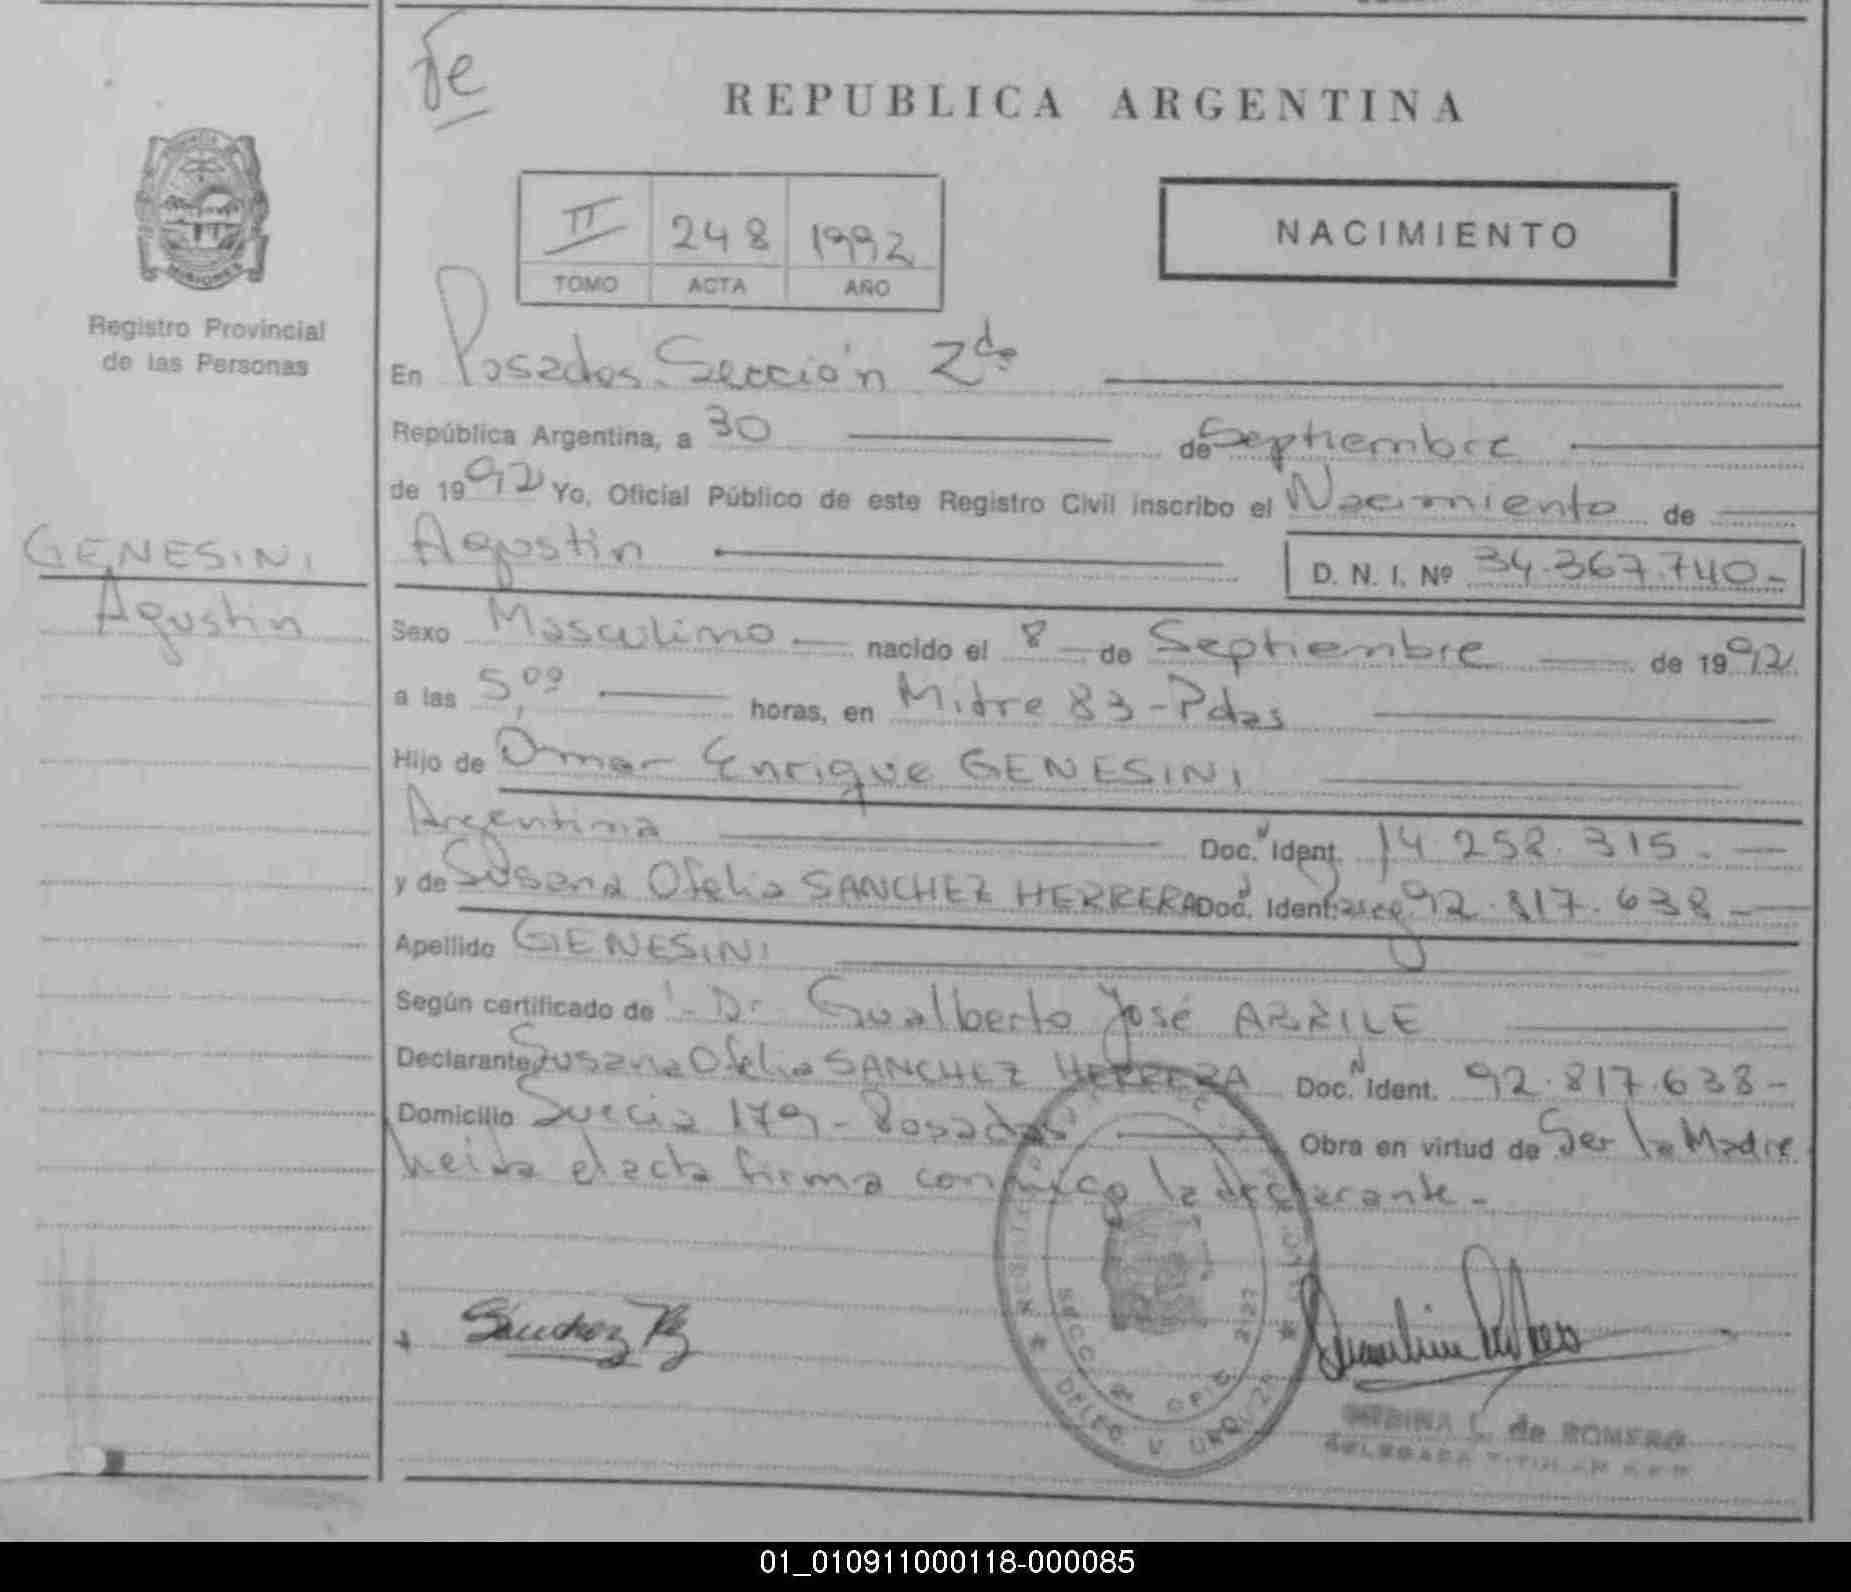 Te
REPUBLICA ARGENTINA
II 248 1992
TOMO ACTA AÑO
NACIMIENTO
MISIONES
Registro Provincial
de las Personas
GENESINI
Agustin
En Posadas Sección 2da
República Argentina, a 30 de Septiembre
de 1992 Yo, Oficial Público de este Registro Civil inscribo el Nacimiento de
Agustin D. N. I. Nº 34.367.740-
Sexo Masculino nacido el 8 de Septiembre de 1992
a las 5,00 horas, en Mitre 83-Pdas
Hijo de Omar Enrique GENESINI
Argentina Doc. N Ident. 14.258.315.
y de Susana Ofelia SANCHEZ HERRERA Doc. Ident. 92.817.638
Apellido GENESINI
Según certificado de Dr Gualberto José ABRILE
Declarante Susana Ofelia SANCHEZ HERRERA Doc. N Ident. 92.817.638-
Domicilio Suecia 179- Posadas Obra en virtud de Ser la Madre
leida el acta firma conmigo la declarante-
Sánchez
SECC 2a OFIC 2127
DELEG. V. URQUIZA
L. de ROMERO
DELEGADA TITULAR
01_010911000118-000085